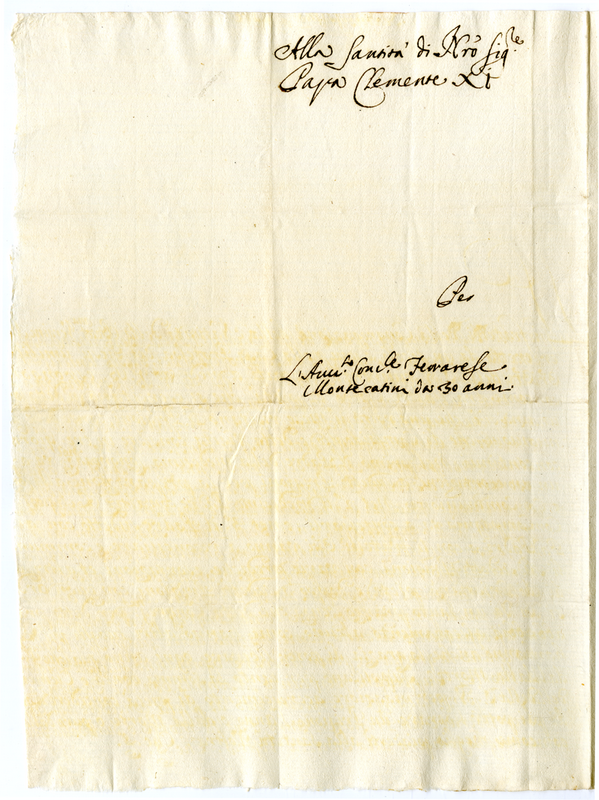 Alla Santità di Nrõ Sig.re
Papa Clemente XI
Per
L'Avu.to Conc.le Ferrarese
Montecatini da 30 anni.